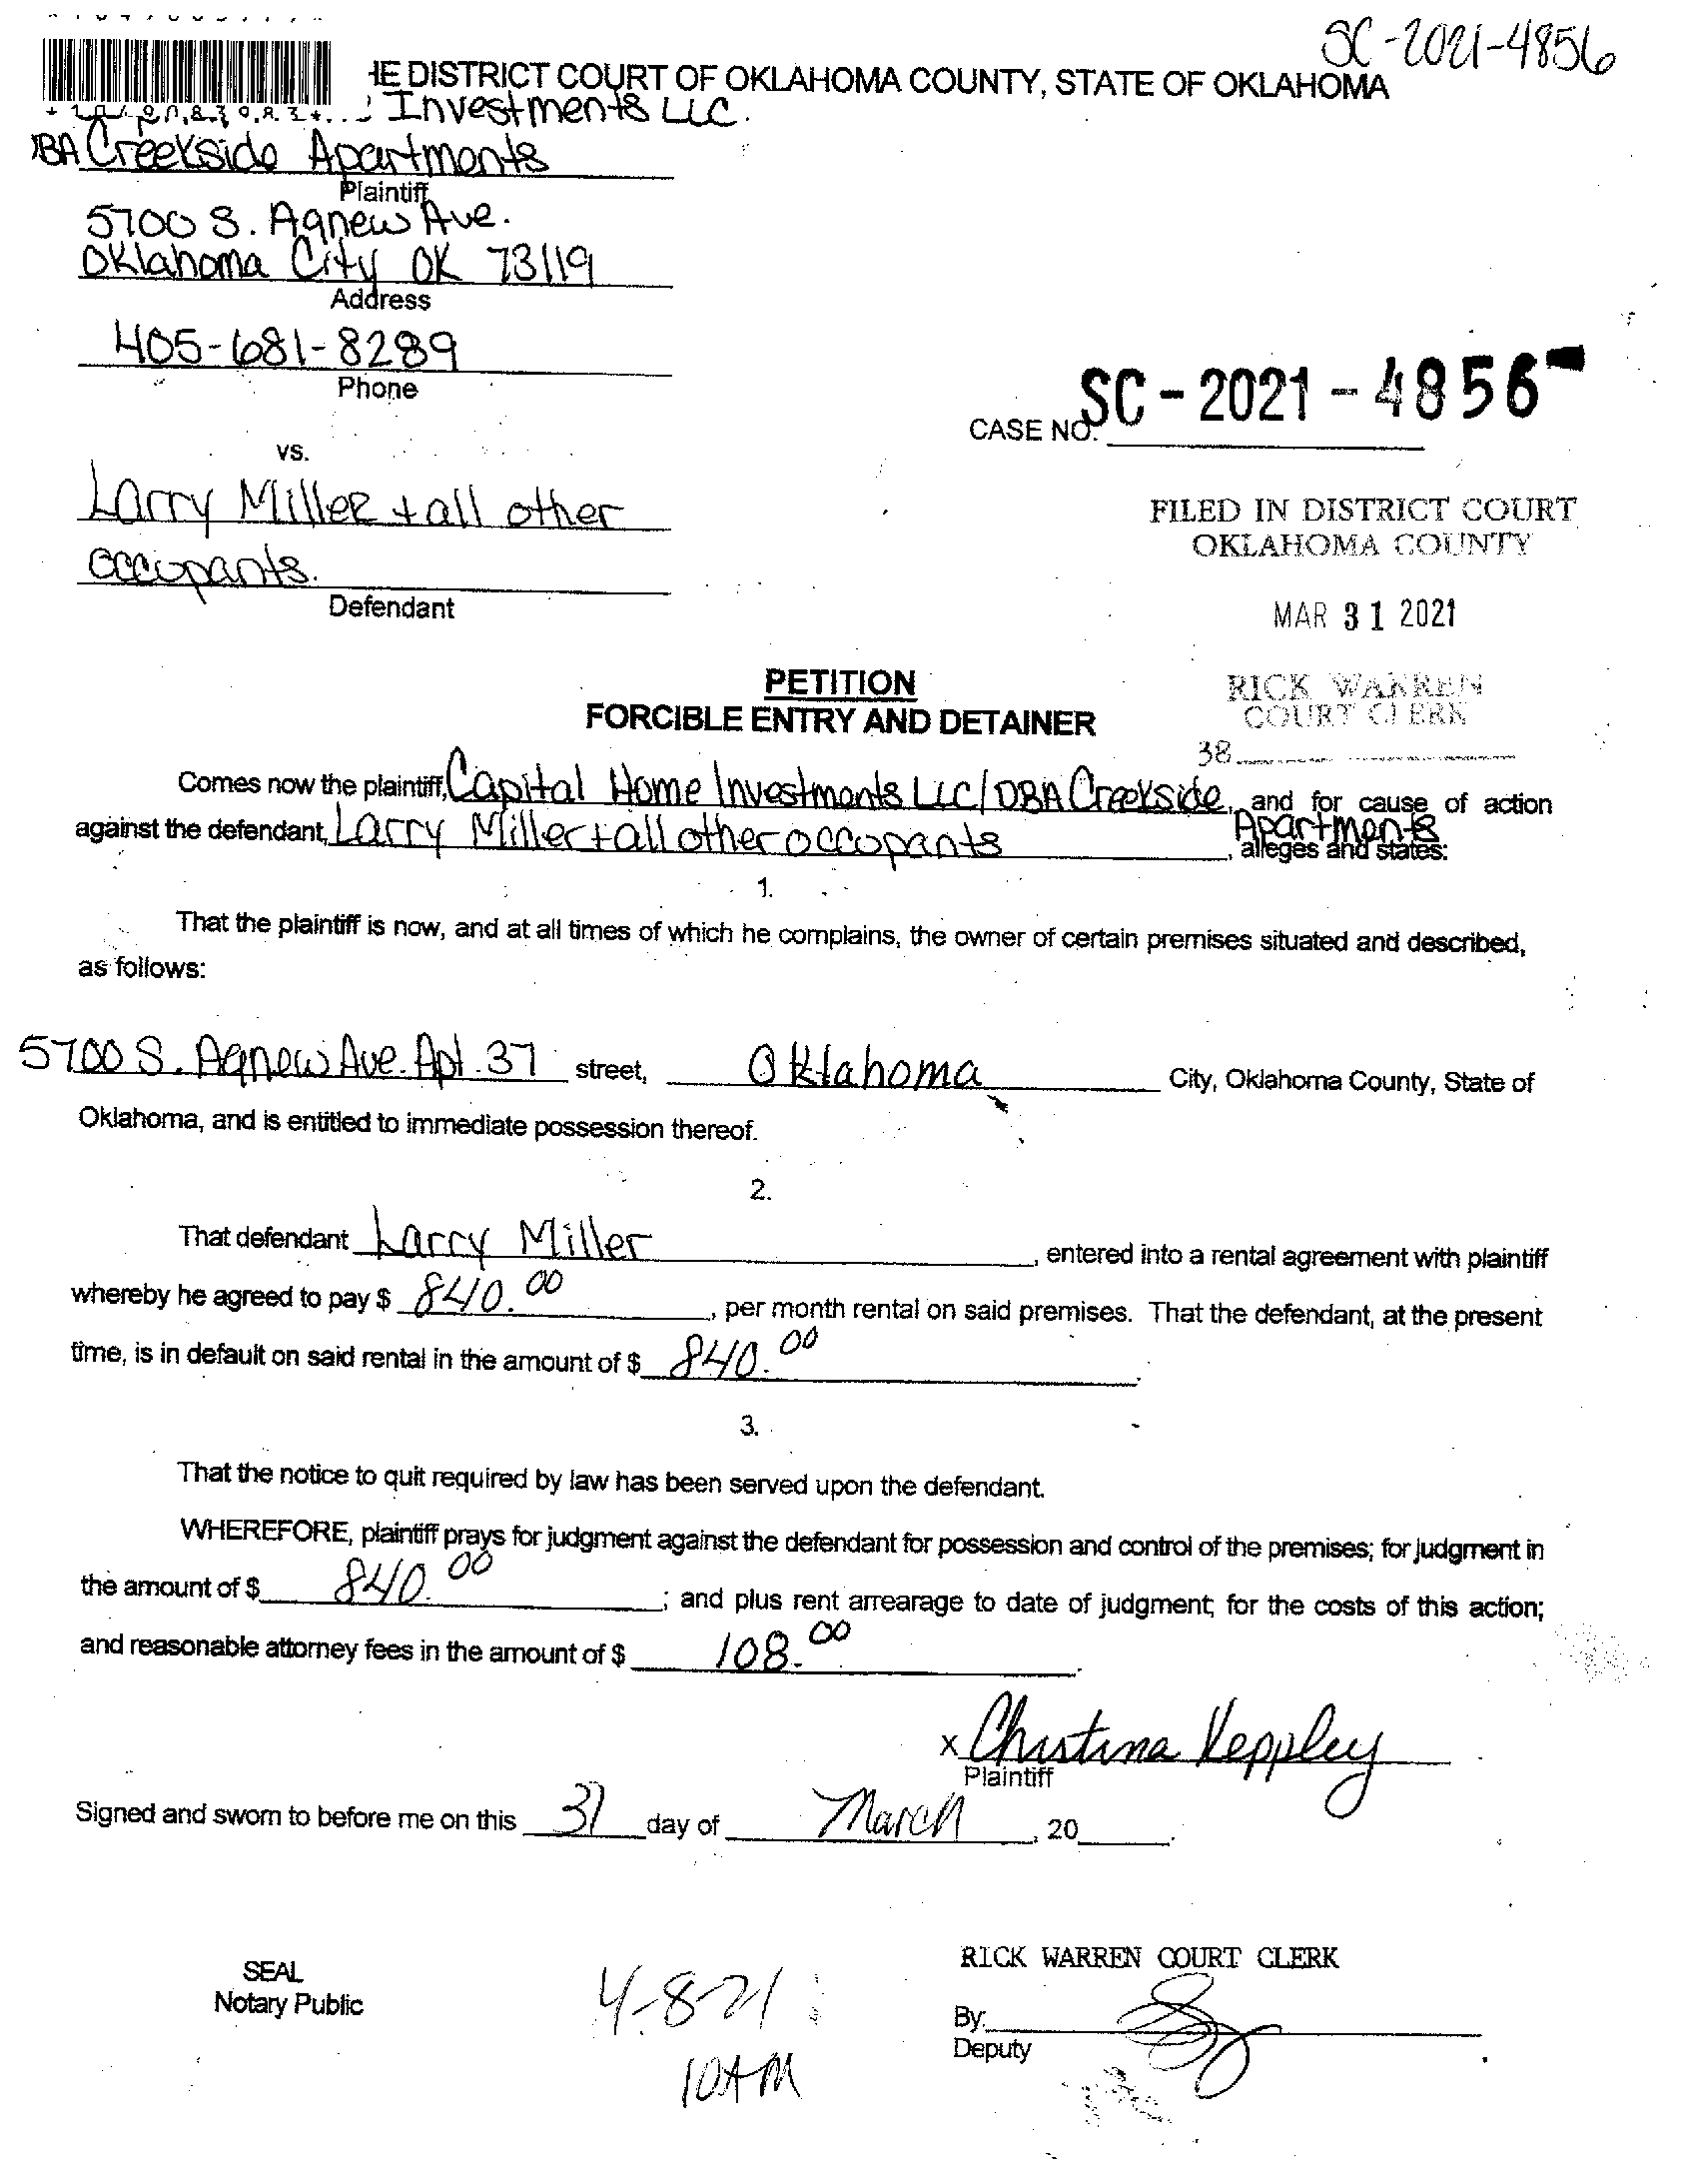 SC-2021-4856
HE DISTRICT COURT OF OKLAHOMA COUNTY, STATE OF OKLAHOMA
Investments LLC.
DBA Creekside Apartments
Plaintiff
5700 S. Agnew Ave.
Oklahoma City OK 73119
Address
405-681-8289
Phone
CASE NO. SC-2021-4856
vs.
Larry Miller + all other
occupants.
Defendant
FILED IN DISTRICT COURT
OKLAHOMA COUNTY
MAR 31 2021
RICK WARREN
COURT CLERK
38
PETITION
FORCIBLE ENTRY AND DETAINER
Comes now the plaintiff, Capital Home Investments LLC/DBA Creekside Apartments, and for cause of action
against the defendant, Larry Miller + all other occupants, alleges and states:
1.
That the plaintiff is now, and at all times of which he complains, the owner of certain premises situated and described,
as follows:
5700 S. Agnew Ave. Apt. 37 street, Oklahoma City, Oklahoma County, State of
Oklahoma, and is entitled to immediate possession thereof.
2.
That defendant Larry Miller, entered into a rental agreement with plaintiff
whereby he agreed to pay $ 840.00, per month rental on said premises. That the defendant, at the present
time, is in default on said rental in the amount of $ 840.00.
3.
That the notice to quit required by law has been served upon the defendant.
WHEREFORE, plaintiff prays for judgment against the defendant for possession and control of the premises; for judgment in
the amount of $ 840.00; and plus rent arrearage to date of judgment; for the costs of this action;
and reasonable attorney fees in the amount of $ 108.00.
x Christina Keppley
Plaintiff
Signed and sworn to before me on this 31 day of March, 20.
SEAL
Notary Public
4-8-21
10AM
RICK WARREN COURT CLERK
By:
Deputy